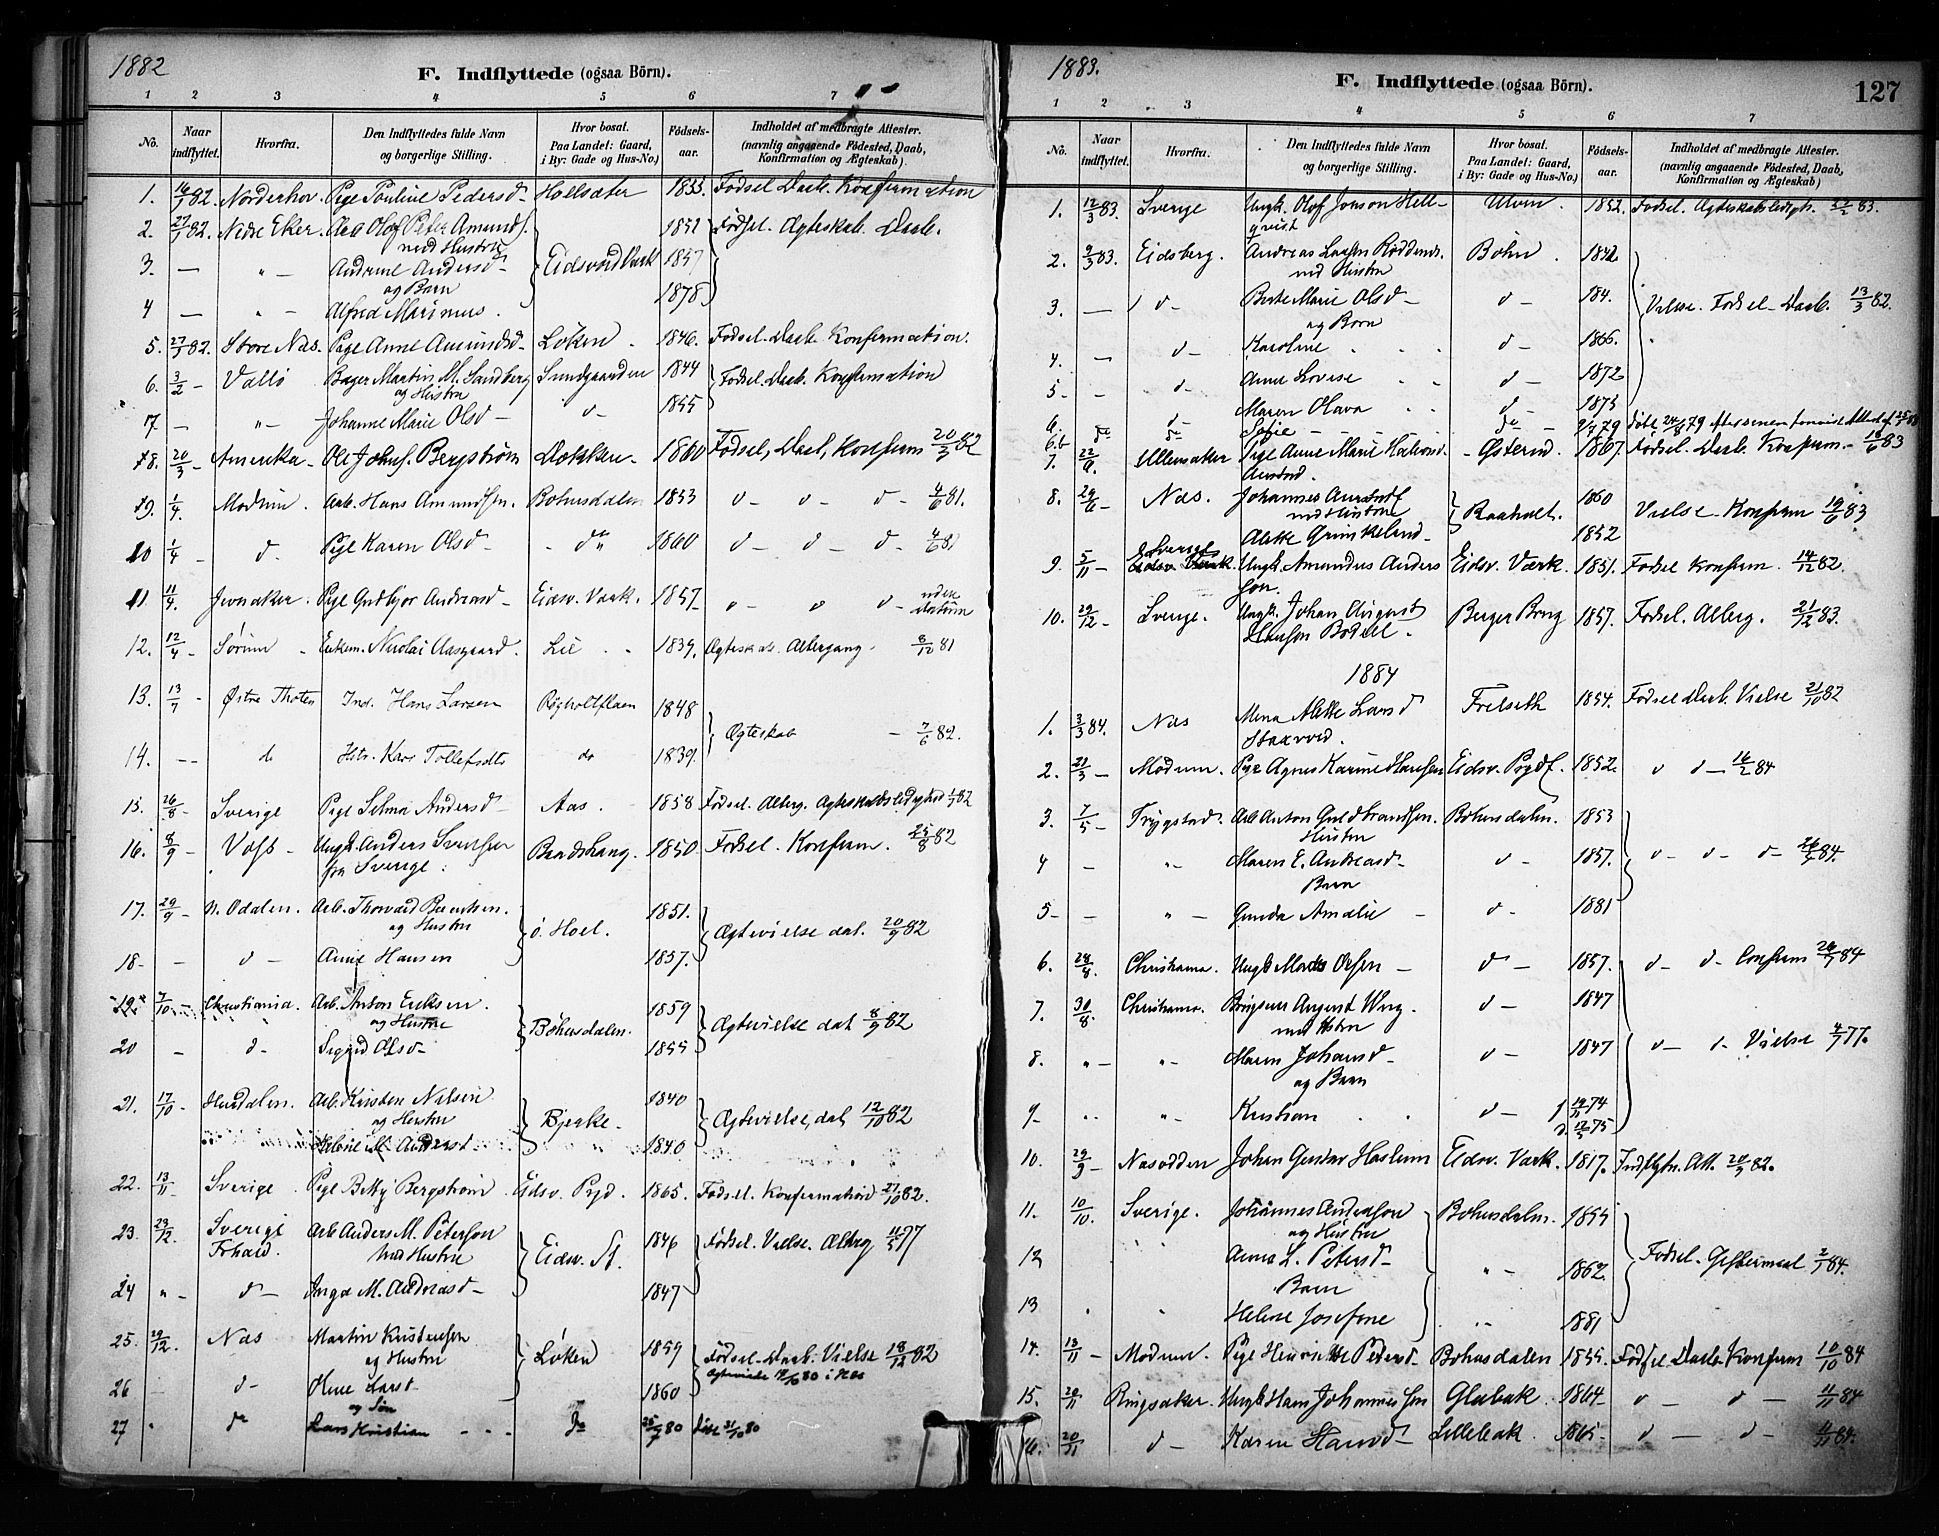 1882
F. Indflyttede (ogsaa Börn).
1 2 3 4 5 6 7
No. Naar indflyttet. Hvorfra. Den Indflyttedes fulde Navn og borgerlige Stilling. Hvor bosat. Paa Landet: Gaard, i By: Gade og Hus-No.) Fødsels-aar. Indholdet af medbragte Attester. (navnlig angaaende Fødested, Daab, Konfirmation og Ægteskab).
1. 16/1 82. Norderhov. Pige Pauline Pedersd Holsæter 1855. Fødsel Daab. Konfirmation
2. 27/1 82. Nedre Eker. Arb Olof Peter Amundf. 1852 Fødsel. Ægteskab. Daab.
med Hustru
3. — " — Andrine Andersd — Eidsvold Værk 1857
og Barn
4 — " — Alfred Marinius. 1878
5. 27/1 82. Store Næs. Pige Anne Amundsd — Løken. 1846. Fødsel. Daab. Konfirmation.
6. 3/2 — Vallø Bager Martin M. Sandberg Sundgaarden 1844 Fødsel. Daab. Konfirmation
og Hustru
7. — " — Johanne Marie Olsd — d — 1855
8. 20/3 — Amerika. Ole Johnf. Bergstrøm Dokken — 1860 Fødsel, Daab, Konfirm 20/3 82
9. 1/4. Modum. Arb. Hans Amundsen. Bohusdalen 1853 d — d — d — 4/6 81.
10 1/4 d. Pige Karen Olsd — — do 1860 d — d — d — 4/6 81
11 11/4. Jevnaker. Pige Gudbjør Andreasd — Eidsv. Værk. 1857. d — d d — uden datum
12. 12/4 Sørum Enkem. Nicolai Aasgaard. Lie 1839. Ægteskab. Altergang. 8/12 81
13. 13/7 — Østre Thoten Ind. Hans Larsen Røgholtflaen 1848
Ægteskab — 7/6 82.
14. — — d Hstr. Kari Tollefsdtr do 1839.
15. 26/8 — Sverige Pige Selma Andersd — Aas. 1858 Fødsel. Alterg. Ægteskabsledighed 1/7 82
16. 8/9 — Vass — Ungk. Anders Svensen Brædshaug. 1850 Fødsel. Konfirm. 25/8 82
fra Sverige.
17. 29/9 — N. Odalen. Arb. Thorvald Berntsen. ø. Hoel. 1851. Ægtevielse dat. 20/9 82
og Hustru
18 — — d — Anne Hansen 1857.
19. 7/10 — Christiania. Arb. Anton Eriksen. 1859
og Hustru Bøhusdalen. Ægtevielse dat 8/9 82
20 — d — Sigrid Olsd — 1855
21. 17/10 — Hurdalen. Arb. Kristen Nilsen 1840
og Hustru Bjerke. Ægtevielse, dat 12/10 82
Helene M. Andersd — 1840
22. 13/11 — Sverige. Pige Betty Bergstrøm — Eidsv. Pgd. 1865. Fødsel. Konfirmation 27/10 82.
23. 23/12. Sverige Arb Anders M. Peterson 1846 Fødsel. Vielse. Alterg 11/5 77
Med Hustru Eidsv. St.
24 " — d — Inga M. Andreasd — 1847
25. 29/12. Næs Martin Kristensen 1859 Fødsel. Daab. Vielse 18/12 82
og Hustru Løken
26 — d — Oline Larsd — 1860
og Søn
27 " do Lars Kristian — — — Do 25/7 80 Døbt 31/10 80
1883.
F. Indflyttede (ogsaa Börn).
127
1 2 3 4 5 6 7
No. Naar indflyttet. Hvorfra. Den Indflyttedes fulde Navn og borgerlige Stilling. Hvor bosat. Paa Landet: Gaard, i By: Gade og Hus-No.) Fødsels-aar. Indholdet af medbragte Attester. (navnlig angaaende Fødested, Daab, Konfirmation og Ægteskab)
1. 12/3 83. Sverige Ungk. Olof Jonson Hell- Ulvin. 1852. Fødsel. Ægteskabsledigh. 83.
qvist
2. 9/3 83. Eidsberg. Andreas Larsen Bøhn. 1842
med Hustru
3. — d — Berte Marie Olsd — d — 184. Vielse. Fødsel. Daab. 13/3 82.
og Børn
4. — d — Karoline d — 1866.
5 — — d — Anne Lovise d — 1872
6. — d — Maren Olava d — 1875
6.b do do Sofie — — — do — 79 Døbt 24/8 79
7. 22/6 — Ullensaker Pige Anne Marie Østerud. 1867. Fødsel. Daab. Konfirm. — 18/6 83
8. 29/6 — Næs. Johannes 1850
med Hustru Raaholt. Vielse. Konfirm 19/6 83
Alette Grinkelund — 1852
9. 5/11 — Sverige Ungk. Amandus Anders Eidsv. Værk. 1851. Fødsel Konfirm. 14/12 82.
son.
10. 29/12 — Sverige. Ungk. Johan August Berger Brug 1857. Fødsel. Alterg. 21/12 83.
1884
1. 3/3 84. Næs Mena Alette Larsd Frelseth 1854. Fødsel Daab. Vielse 21/10 82
2. 21/3 — Modum. Pige Agnes Karine Hansen Eidsv. Pgd. 1852. d d — 16/2 84
3. 7/5 — Trygstad. Arb Anton Guldbrandsen. Bohusdalen. 1853
Hustru
4 — " — Maren E. Andreasd — d — 1857. d — d — d — 84.
Barn
5 — — " — Gunda Amalie — d — 1881
6. 28/4. Christiania. Ungk. d — 1857. d — d — Confirm 84
7. 30/8. Christiania. August d — 1847
med Hstru
8. " — " — Maren Johansd — d — 1847 d — d — Vielse 77.
og Barn
9 — " " — Kristian d — f 19/11 74
d. 75
10. 29/9 — Næsodden Johan Gustav Haslum Eidsv. Værk. 1817. Indflytn. Att. 20/9 82.
11. 10/10. Sverige. Johannes Anderson Bohusdalen. 1855
og Hustru
12 Anna L. Petersd — " — 1862. Fødsel. Giftermaal 84.
Barn
13 Helene Josefine " 1881
14. 13/11 — Modum. Pige Henriette Petersd — Bohusdalen 1855. Fødsel. Daab. Konfirm 10/10 84
15. 20/11 Ringsaker. Ungk Hans Johannesson Glæbak. 1864. d — d — 4/11 84
16. 20/11 d — Karen Hansd — Lillebæk. 1865. d — d — 4/11 84.